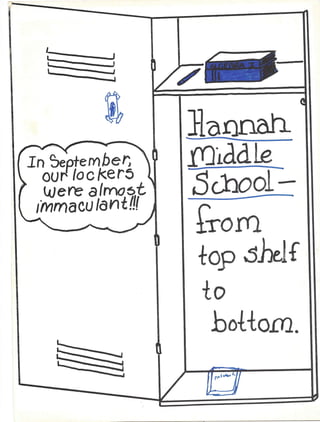 In September,
our lockers
were almost
immaculant!!!
Hannah
Middle
School—
from
top shelf
to
bottom.